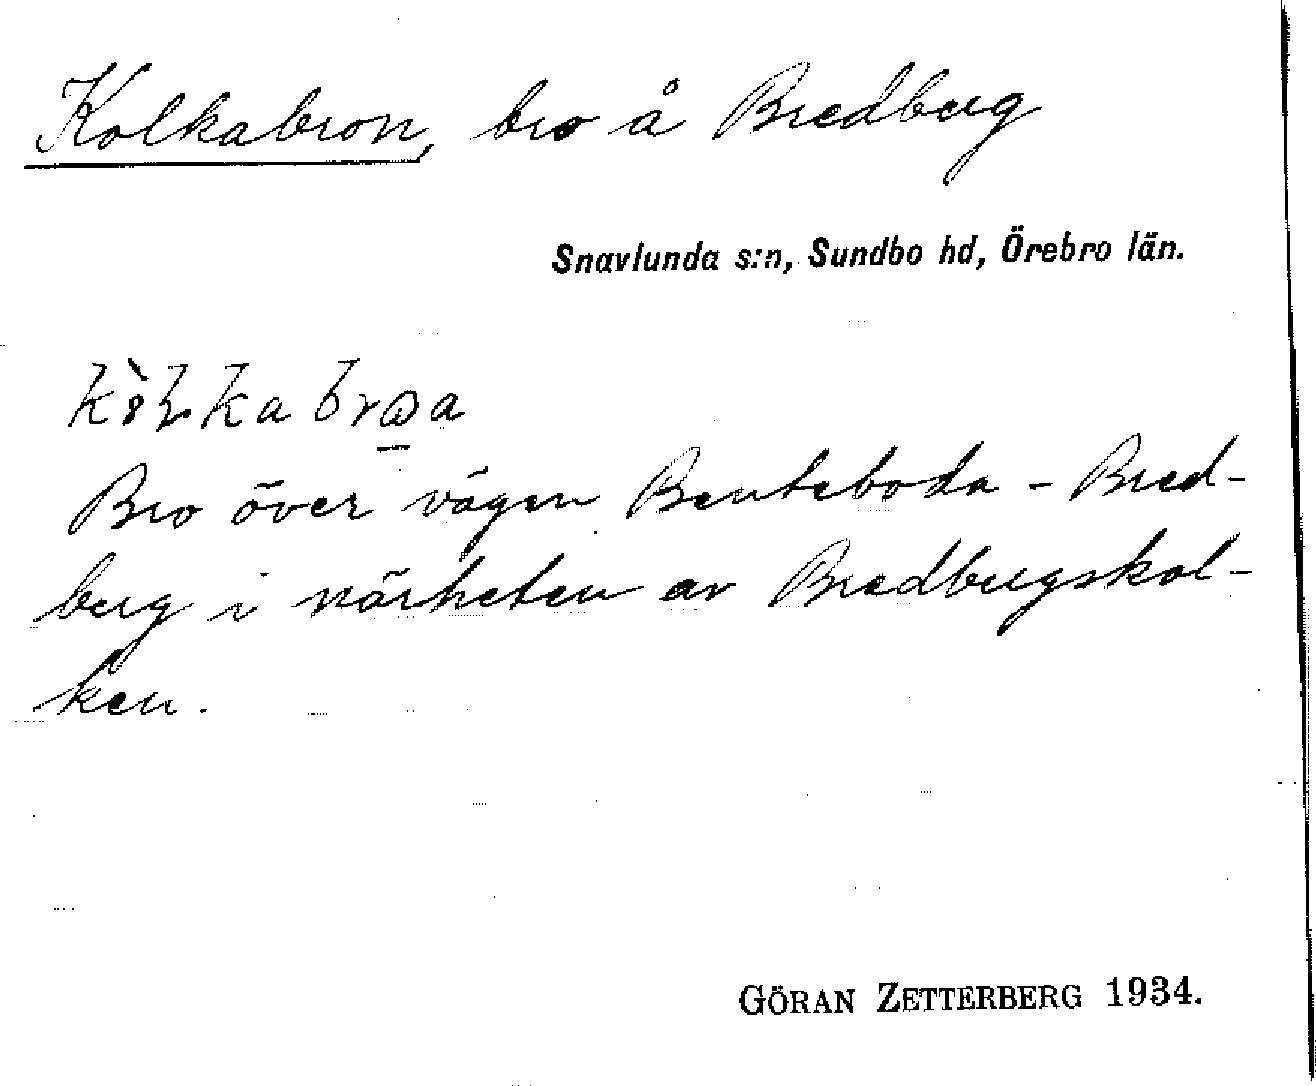 Kolkabron, bro å Bredberg
Snavlunda s:n, Sundbo hd, Örebro län.
Bro över vägen Benteboda - Bred-
berg i närheten av Bredbergskol-
ken.
GÖRAN ZETTERBERG 1934.